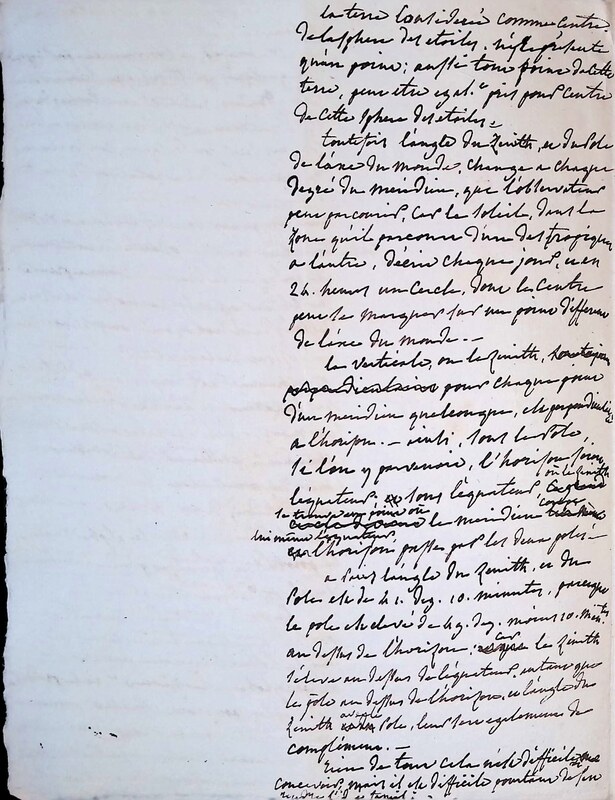 la terre considerée comme centre
de la sphere des etoiles, n'y represente
qu'un point; aussi tout point de cette
terre, peut etre egal.t pris pour centre
de cette sphere des etoiles =
toutefois l'angle du Zenith, et du Pole
de l'axe du monde, change a chaque
degré du meridien, que l'observateur
peut parcourir, car le soleil, dans la
Zone qu'il parcourt d'un des tropiques
a l'autre, décrit chaque jour, et en
24. heures un cercle, dont le centre
peut se marquer sur un point different
de l'axe du monde. -
la verticale, ou le Zenith,
pour chaque point
d'un meridien quelconque, est perpendiculaire
a l'horison. - ainsi, sous le Pole,
si l'on y parvenoit, l'horison seroit
l'équateur, et sous l'équateur, ou le Zenith
se trouve un point où
le meridien coupe
lui même l'equateur
l'horison passe par les deux poles -
a Paris l'angle du Zenith, et du
Pole est de 41. deg. 10. minutes, parceque
le pole est elevé de 49. deg. moins 10. min.tes
au dessus de l'horison; car le Zenith
s'éleve au dessus de l'équateur, autant que
le pole au dessus de l'horison, et l'angle du
Zenith avec le Pole, leur sert egalement de
complément. -
Rien de tout cela n'est difficile a
concevoir, mais il est difficile pourtant de s'en